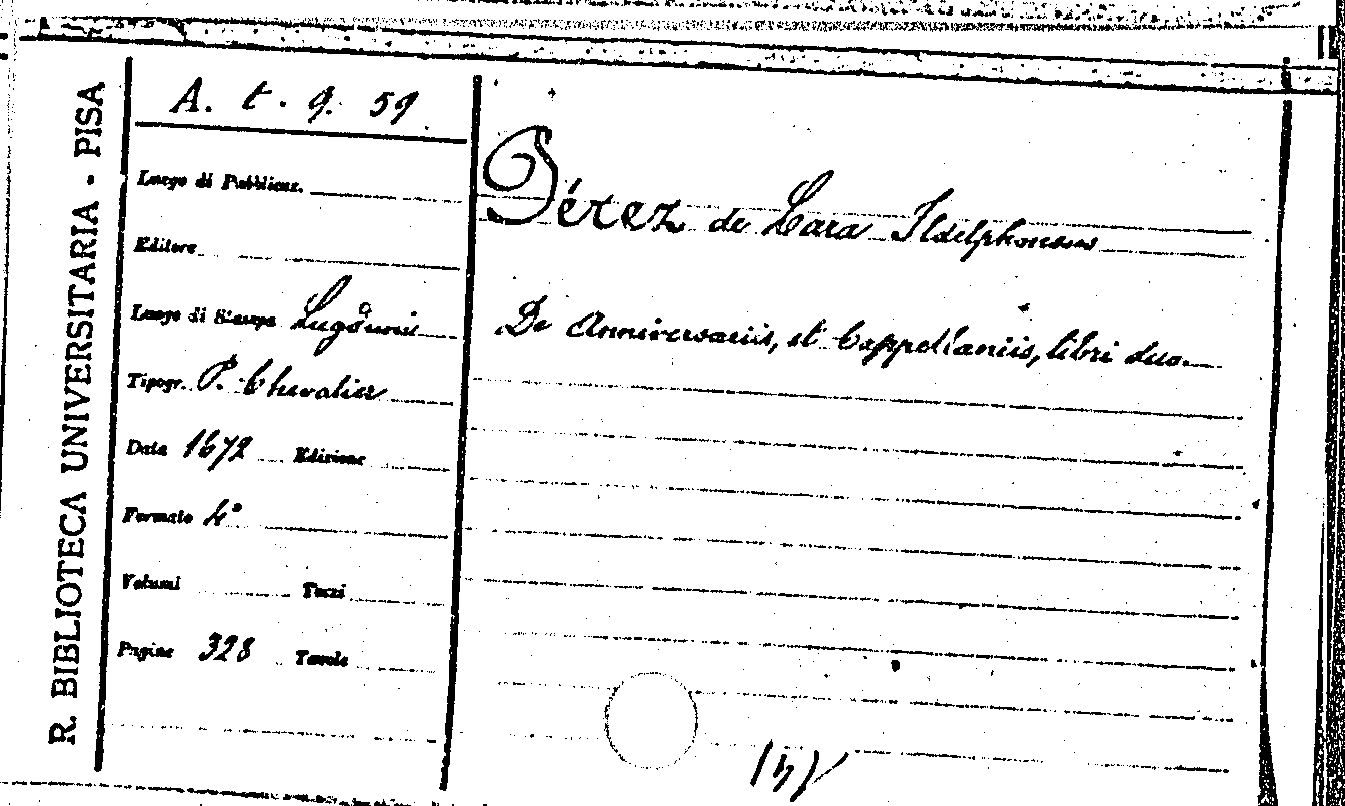 R. BIBLIOTECA UNIVERSITARIA - PISA
A. t. 9. 59
Luogo di Pubblicaz.
Editore
Luogo di Stampa Lugduni
Tipogr. P. Chevalier
Data 1672 Edizione
Formato 4°
Volumi Tomi
Pagine 328 Tavole
Pérez de Lara Ildelphonsus
De Anniversariis, et Cappellaniis, libri duo.